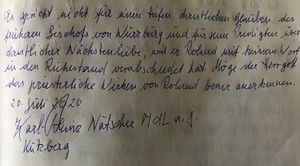 Es spricht nicht für einen tiefen christlichen Glauben des
früheren Bischofs von Würzburg und für sein Predigten über
christlicher Nächstenliebe, weil er Roland mit keinem Wort
in den Ruhestand verabschiedet hat. Möge der Herrgott
das priesterliche Wirken von Roland besser anerkennen.
20. Juli 2020
Karl-Heinz Nätscher MdL a.D.
Kützberg